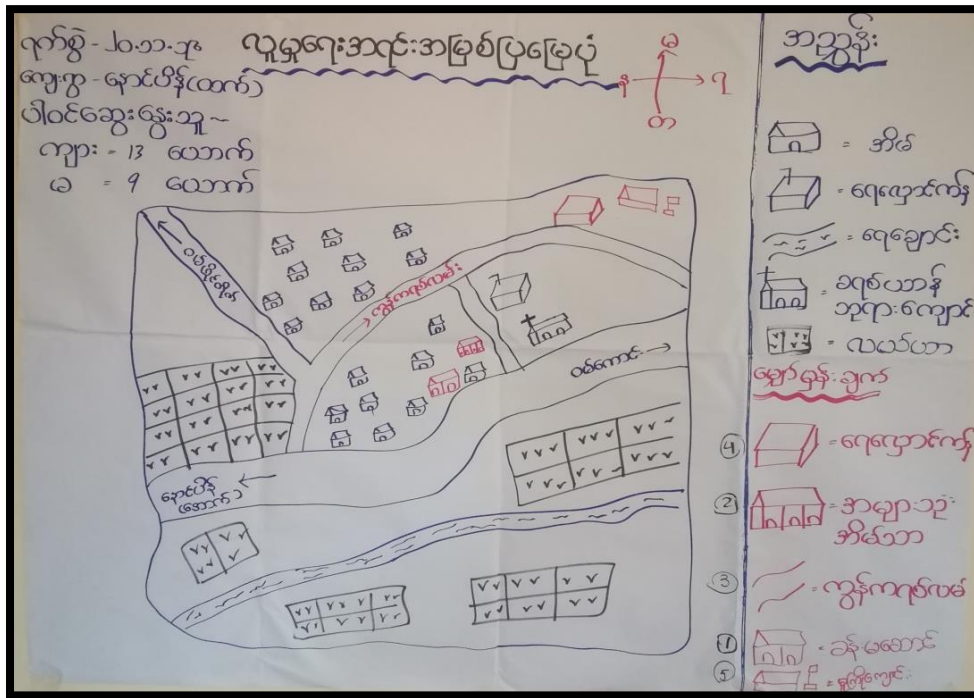 လူမှုရေးအရင်းအမြစ်ပြမြေပုံ
ကျေးရွာ - နောင်ပိန်(ထက်)
ပါဝင်ဆွေးနွေးသူ ~
ကျား - 13 ယောက်
မ = 9 ယောက်
မ
န
ရ
တ
ကွန်ကရစ်လမ်း
ဝမ်ကောင်း
နောင်ပိန်
(အောက်)
အညွှန်း
= အိမ်
= ရေလှောင်ကန်
= ရေချောင်း
= ခရစ်ယာန်
ဘုရားကျောင်း
= လယ်ယာ
မျှော်မှန်းချက်
④ = ရေလှောင်ကန်
② = အများသုံး
အိမ်သာ
③ = ကွန်ကရစ်လမ်
① = ခန်းမဆောင်
⑤ = မူကြိုကျောင်း